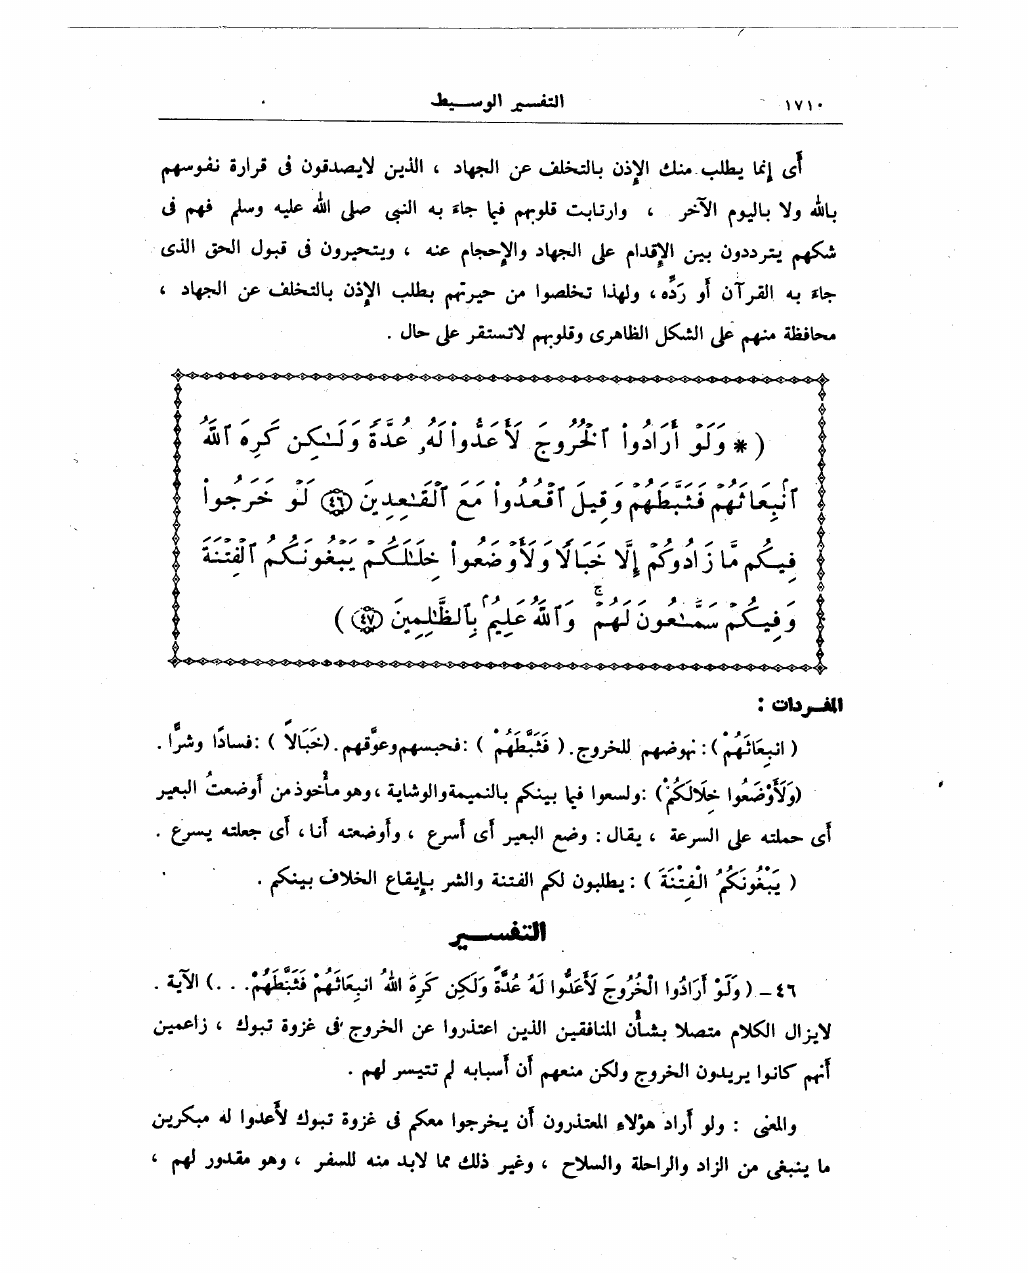 ١٧١٠
التفسير الوسيط
أى إنما يطلب منك الإذن بالتخلف عن الجهاد ، الذين لايصدقون فى قرارة نفوسهم
بالله ولا باليوم الآخر ، وارتابت قلوبهم فيما جاءَ به النبى صلى الله عليه وسلم فهم فى
شكهم يترددون بين الإقدام على الجهاد والإحجام عنه ، ويتحيرون فى قبول الحق الذى
جاءَ به القرآن أو رَدِّه ، ولهذا تخلصوا من حيرتهم بطلب الإذن بالتخلف عن الجهاد ،
محافظة منهم على الشكل الظاهرى وقلوبهم لاتستقر على حال .
( * وَلَوْ أَرَادُوا۟ ٱلْخُرُوجَ لَأَعَدُّوا۟ لَهُۥ عُدَّةً وَلَـٰكِن كَرِهَ ٱللَّهُ
ٱنۢبِعَاثَهُمْ فَثَبَّطَهُمْ وَقِيلَ ٱقْعُدُوا۟ مَعَ ٱلْقَـٰعِدِينَ ﴿٤٦﴾ لَوْ خَرَجُوا۟
فِيكُم مَّا زَادُوكُمْ إِلَّا خَبَالًا وَلَأَوْضَعُوا۟ خِلَـٰلَكُمْ يَبْغُونَكُمُ ٱلْفِتْنَةَ
وَفِيكُمْ سَمَّـٰعُونَ لَهُمْ ۗ وَٱللَّهُ عَلِيمٌۢ بِٱلظَّـٰلِمِينَ ﴿٤٧﴾ )
المفردات :
( انبِعَاثَهُمْ ) : نهوضهم للخروج . ( فَثَبَّطَهُمْ ) : فحبسهم وعوَّقهم . (خَبَالاً ) : فسادًا وشرًّا .
(وَلَأَوْضَعُوا خِلَالَكُمْ) : ولسعوا فيما بينكم بالنميمة والوشاية ، وهو مأْخوذ من أوضعتُ البعير
أى حملته على السرعة ، يقال : وضع البعير أى أسرع ، وأوضعته أنا ، أى جعلته يسرع .
( يَبْغُونَكُمُ الْفِتْنَةَ ) : يطلبون لكم الفتنة والشر بإيقاع الخلاف بينكم .
التفسير
٤٦ – ( وَلَوْ أَرَادُوا الْخُرُوجَ لَأَعَدُّوا لَهُ عُدَّةً وَلَكِن كَرِهَ اللهُ انبِعَاثَهُمْ فَثَبَّطَهُمْ . . . ) الآية .
لايزال الكلام متصلا بشأْن المنافقين الذين اعتذروا عن الخروج فى غزوة تبوك ، زاعمين
أنهم كانوا يريدون الخروج ولكن منعهم أن أسبابه لم تتيسر لهم .
والمعنى : ولو أراد هؤلاءِ المعتذرون أن يخرجوا معكم فى غزوة تبوك لأعدوا له مبكرين
ما ينبغى من الزاد والراحلة والسلاح ، وغير ذلك مما لابد منه للسفر ، وهو مقدور لهم ،